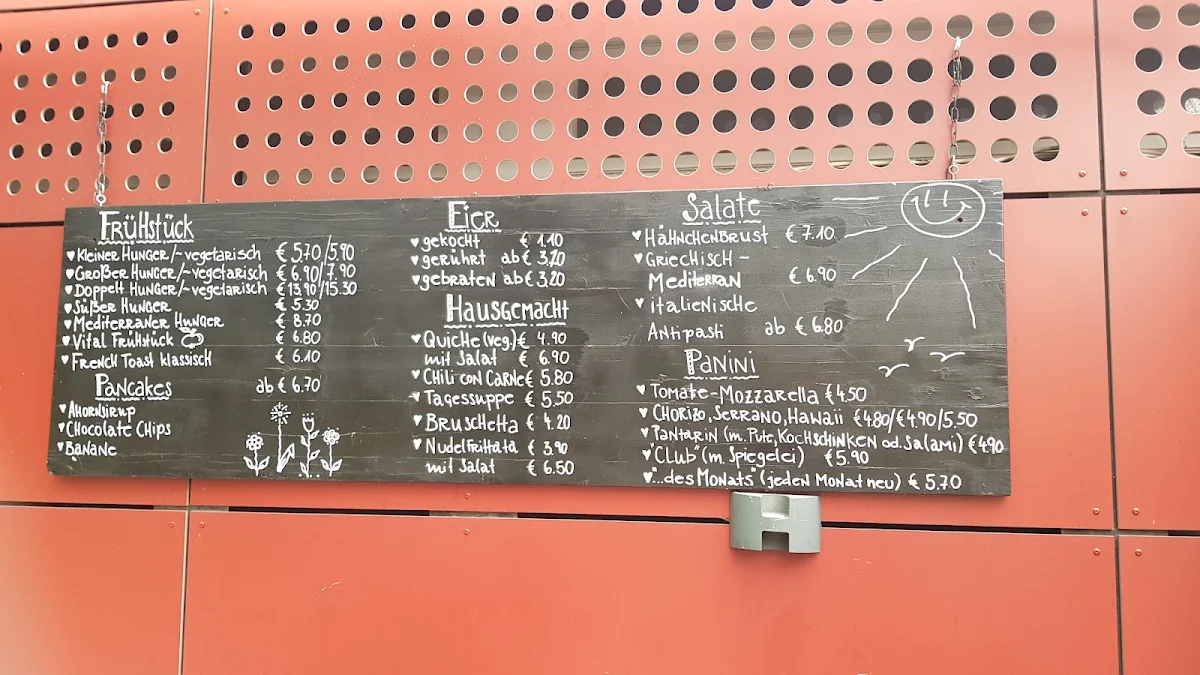 Frühstück
Kleiner Hunger/~vegetarisch € 5.70/5.90
Großer Hunger/~vegetarisch € 6.90/7.90
Doppelt Hunger/~vegetarisch € 13.90/15.30
Süßer Hunger € 5.30
Mediterraner Hunger € 8.70
Vital Frühstück € 6.80
French Toast klassisch € 6.10
Pancakes ab € 6.70
Ahornsirup
Chocolate Chips
Banane
Eier
gekocht € 1.10
gerührt ab € 3.20
gebraten ab € 3.20
Hausgemacht
Quiche (veg.) € 4.90
mit Salat € 6.90
Chili con Carne € 5.80
Tagessuppe € 5.50
Bruschetta € 4.20
Nudelfrittata € 3.90
mit Salat € 6.50
Salate
Hähnchenbrust € 7.10
Griechisch -
Mediterran € 6.90
italienische
Antipasti ab € 6.80
Panini
Tomate-Mozzarella € 4.50
Chorizo, Serrano, Hawaii € 4.80/€ 4.90/5.50
Pantarin (m. Pute, Kochschinken od. Salami) € 4.90
"Club" (m. Spiegelei) € 5.90
"...des Monats" (jeden Monat neu) € 5.70